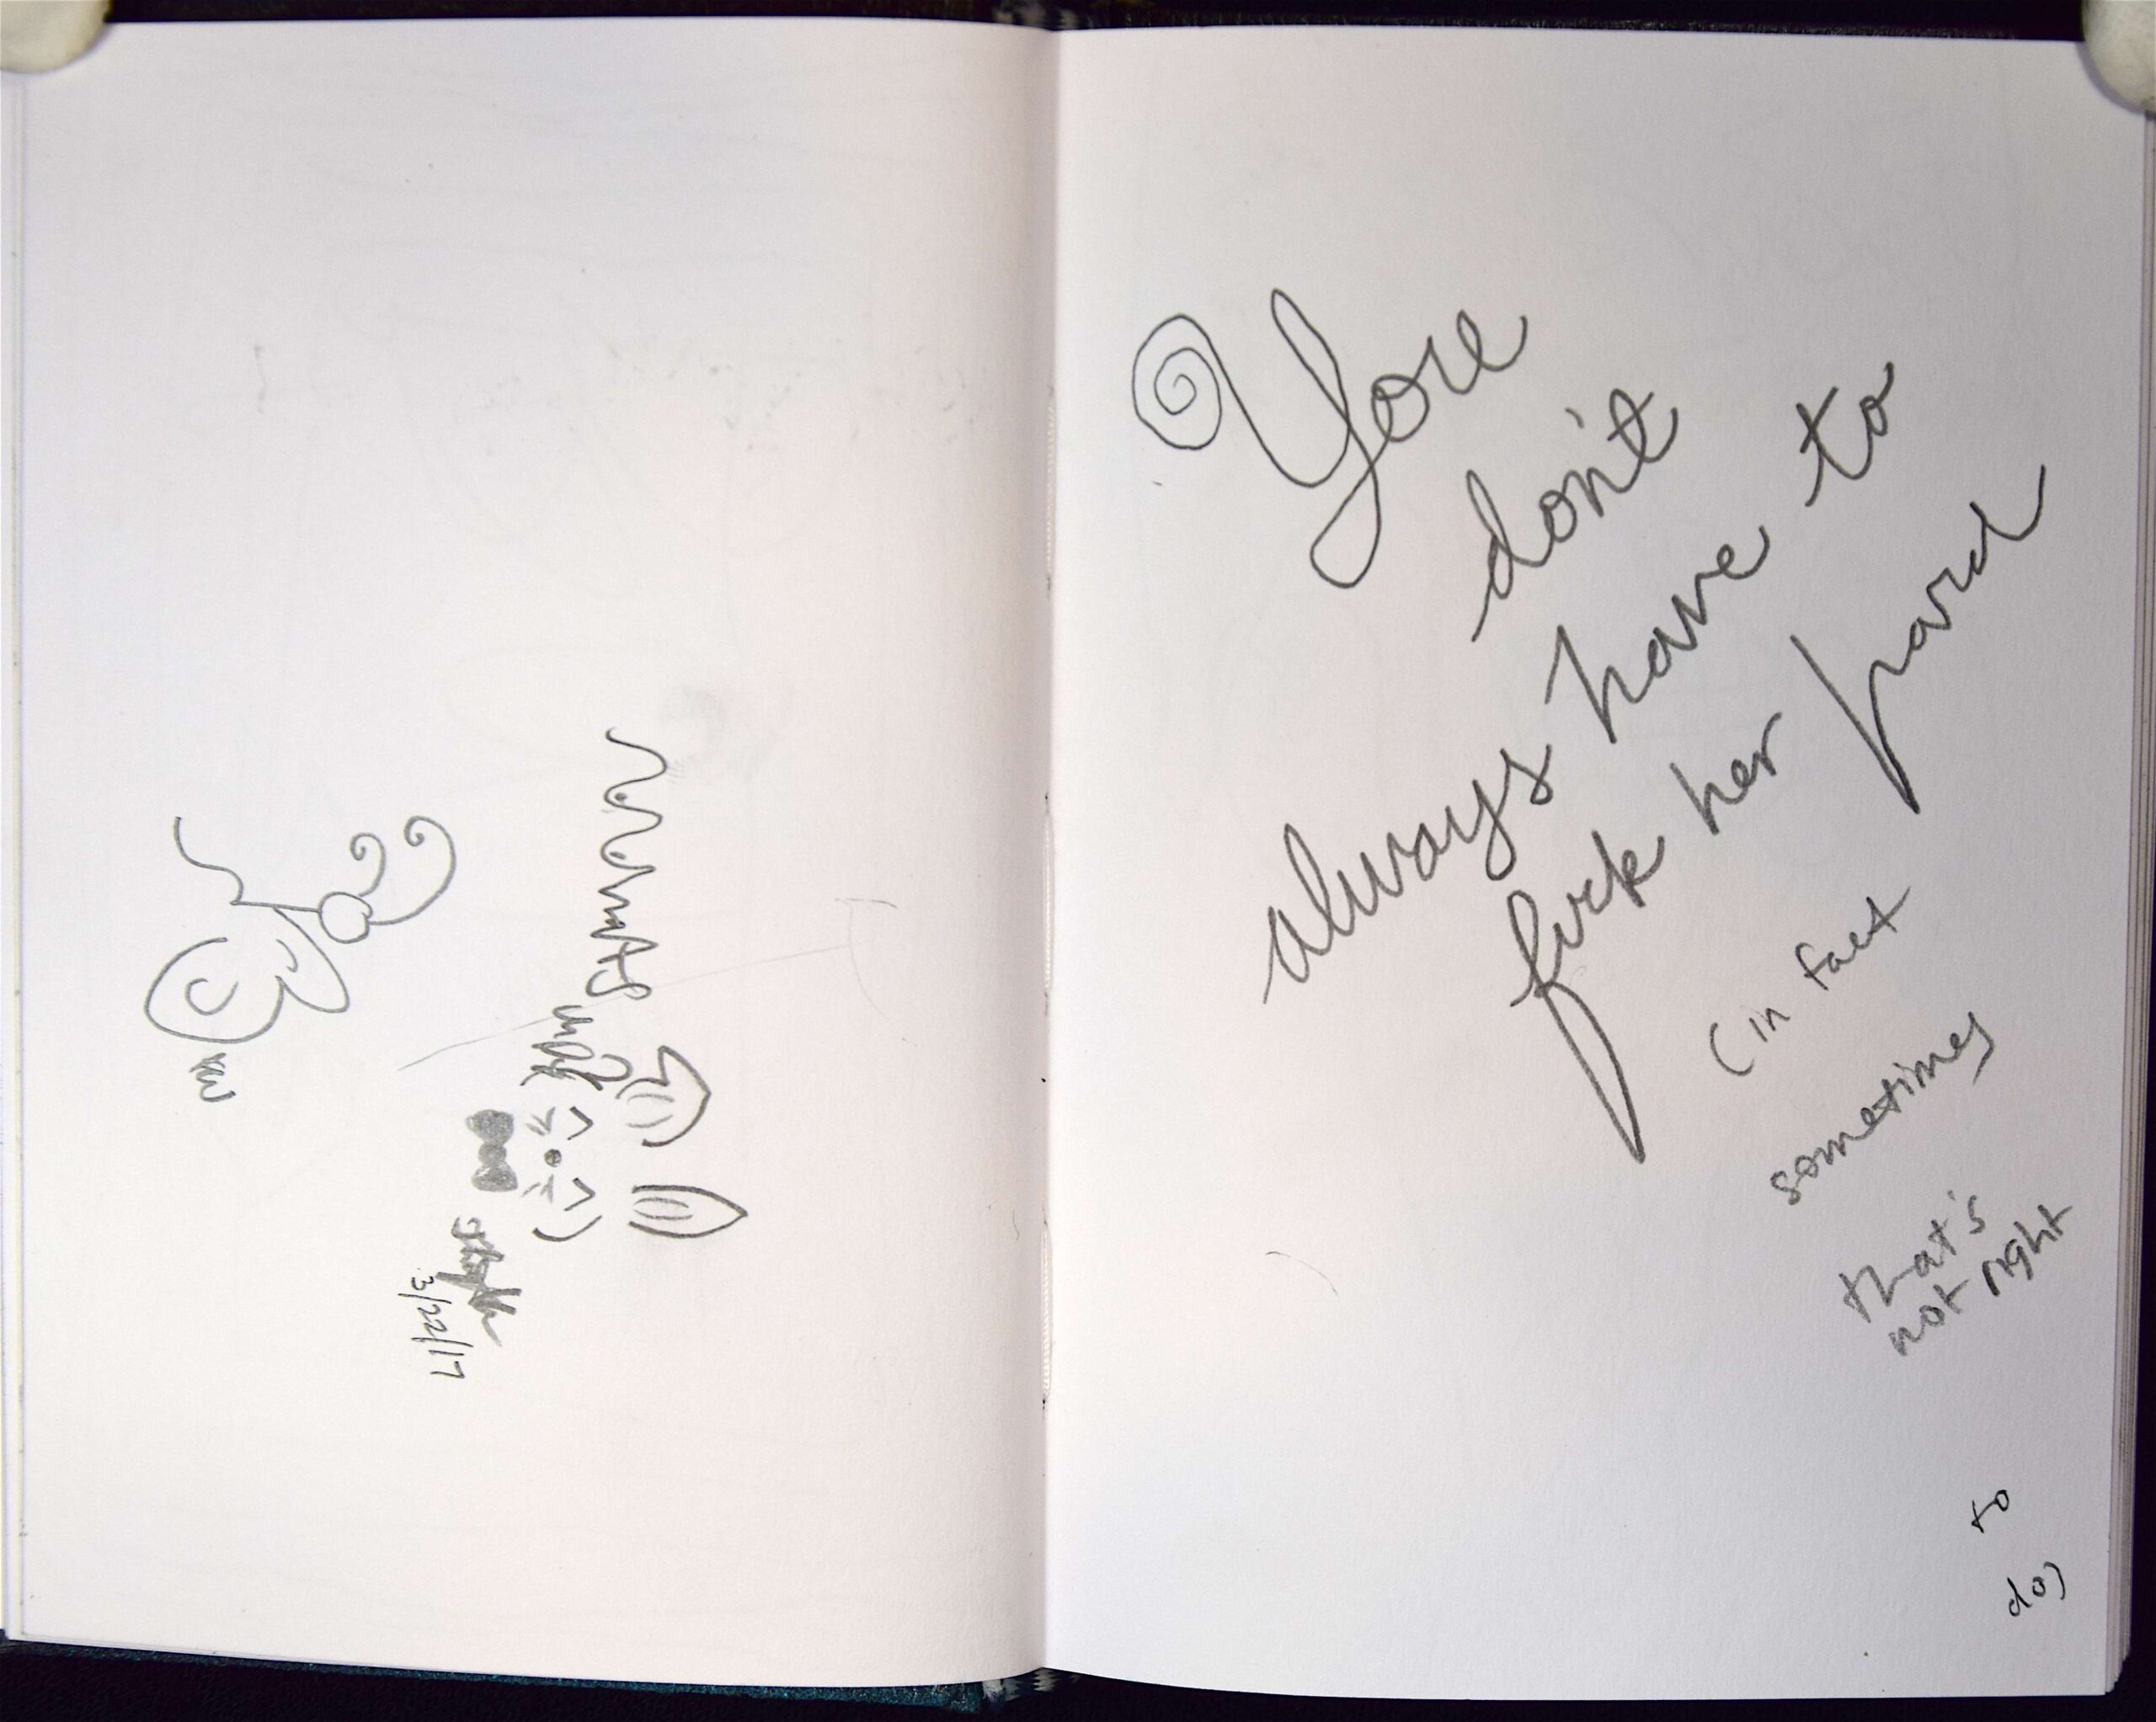 You
don't
always have to
fuck her hard
(in fact
sometimes
that's
not right
to
do)
3/22/17